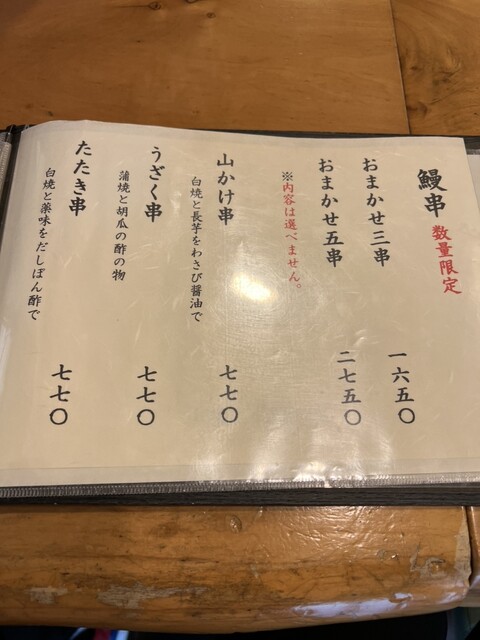 鰻串 数量限定
おまかせ三串 一六五〇
おまかせ五串 二七五〇
※内容は選べません。
山かけ串 七七〇
白焼と長芋をわさび醤油で
うざく串 七七〇
蒲焼と胡瓜の酢の物
たたき串 七七〇
白焼と薬味をだしぽん酢で